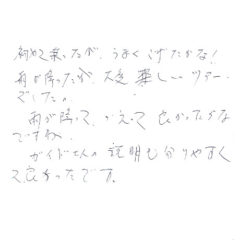 初めて乗ったが、うまくこげたかな！
雨が降ったが、大変楽しいツアー
でした。
雨が降って、かえって良かったかな
ですね。
ガイドさんの説明も分りやすく
て良かったです。